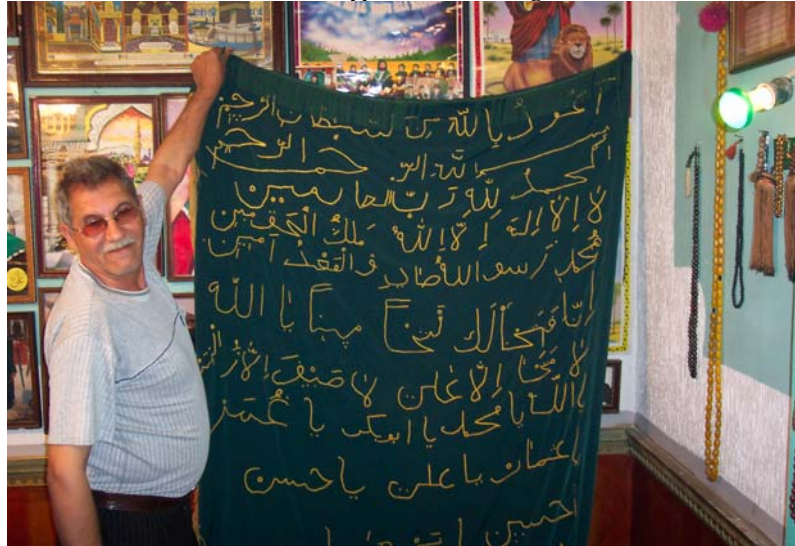 اعوذ باالله من شيطان الرجيم
بسم الله الر حمن الرحيم
الحمد لله رب العالمين
لا إله إلا الله ملك الحق
محمد رسو الله صادق الوعد امين
إنا فتحنا لك فتحاً مبيناً يا الله
لا فتى إلا علي لا سيف إلا
يا الله يا محمد يا ابوبكر يا عمر
يا عثمان يا علي يا حسن